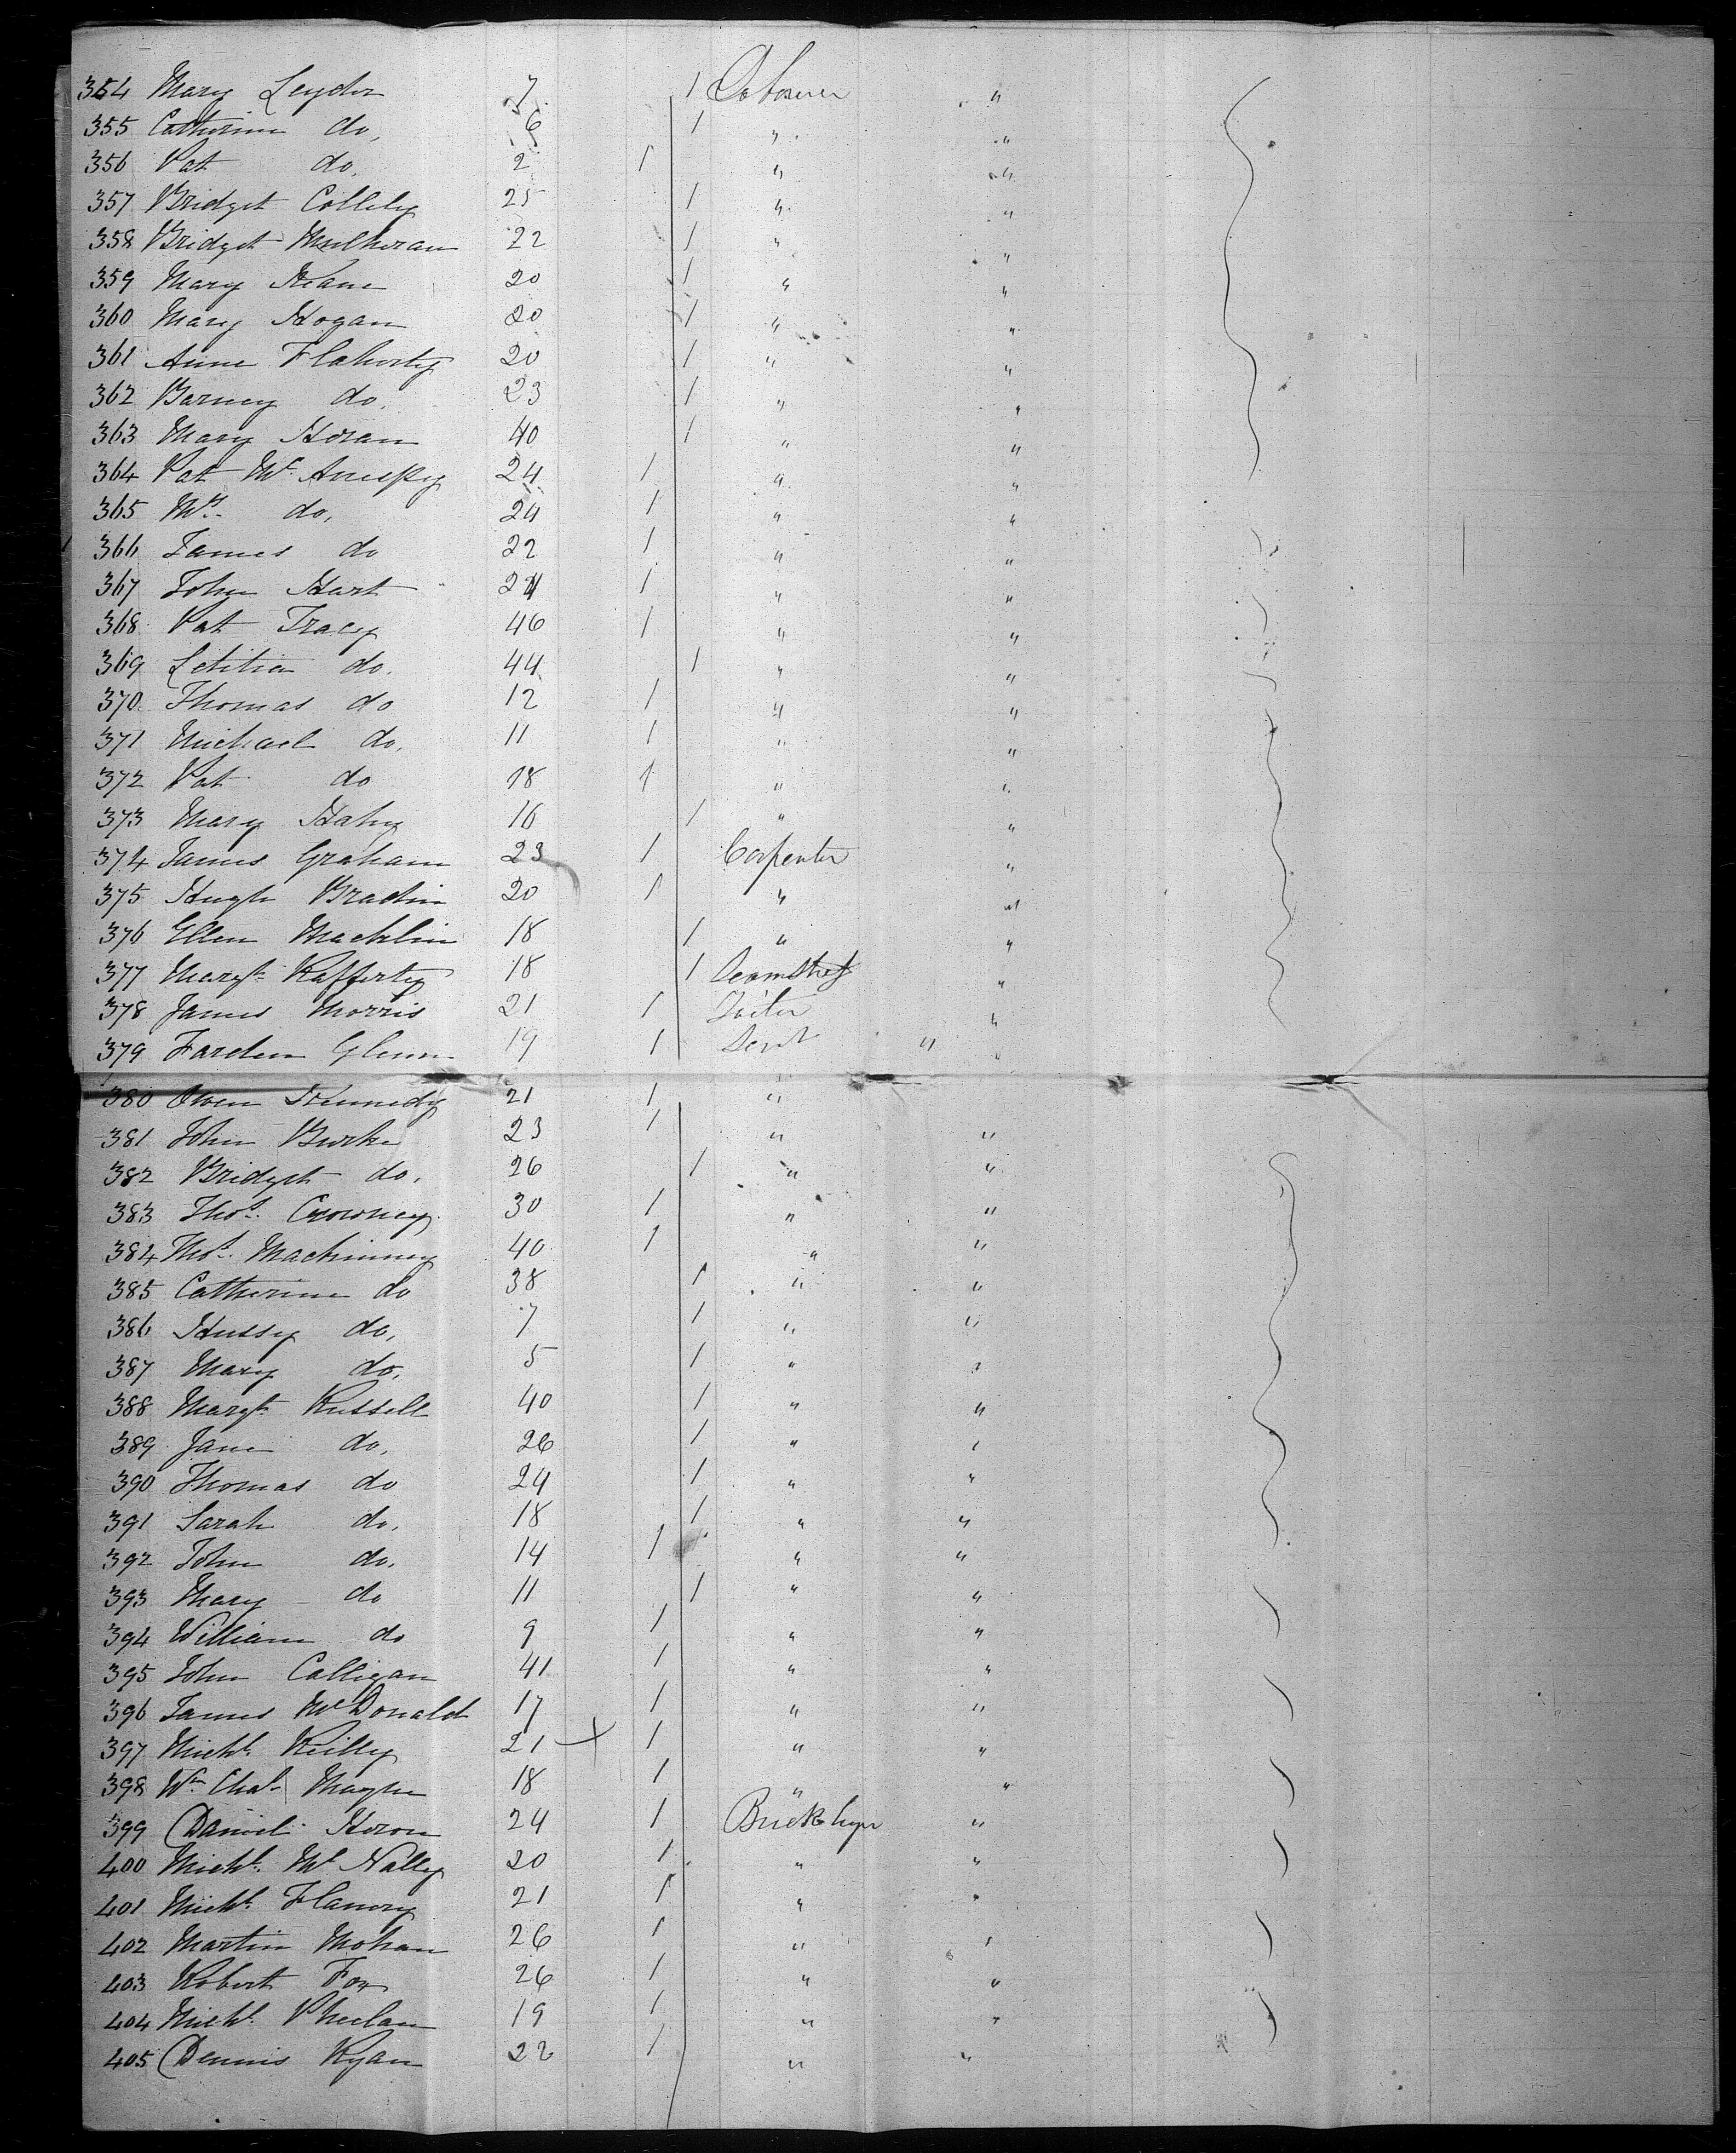 354 Mary Leydon 7 1 Labourer "
355 Catherine do, 6 1 " "
356 Pat do. 2 1 " "
357 Bridget Collely 25 1 " "
358 Bridget Mulheran 22 1 " "
359 Mary Keane 20 1 " "
360 Mary Hogan 20 1 " "
361 Anne Flaherty 20 1 " "
362 Barney do. 23 1 " "
363 Mary Horan 40 1 " "
364 Pat Mc 24 1 " "
365 do, 24 1 " "
366 James do 22 1 " "
367 John Hart 24 1 " "
368 Pat Tracy 46 1 " "
369 Letitia do. 44 1 " "
370 Thomas do 12 1 " "
371 Michael do. 11 1 " "
372 Pat do 18 1 " "
373 Mary Hahy 16 1 " "
374 James Graham 23 1 Carpenter "
375 Hugh Bradin 20 1 " "
376 Ellen Macklin 18 1 " "
377 Margt. Rafferty 18 1 Seamstress "
378 James Morris 21 1 "
379 Glenn 19 1 Servt " "
380 Owen Kennedy 21 1 "
381 John Burke 23 1 " "
382 Bridget do. 26 1 " "
383 Thos. Crowney 30 1 " "
384 Thos. Mackinney 40 1 " "
385 Catherine do 38 1 " "
386 Hussy do, 7 1 " "
387 Mary do. 5 1 " "
388 Margt. Russell 40 1 " "
389 Jane do, 26 1 " "
390 Thomas do 24 1 " "
391 Sarah do. 18 1 " "
392 John do. 14 1 " "
393 Mary do 11 1 " "
394 William do 9 1 " "
395 John Calligan 41 1 " "
396 James McDonald 17 1 " "
397 Michl. Reilly 21 X 1 " "
398 Wm Chas. 18 1 " "
399 Daniel Heron 24 1 Bricklayer "
400 Michl. Mc Nally 20 1 " "
401 Michl. Flanory 21 1 " "
402 Martin Mohan 26 1 " "
403 Robert Fox 26 1 " "
404 Michl. Pheelan 19 1 " "
405 Dennis Ryan 22 1 " "